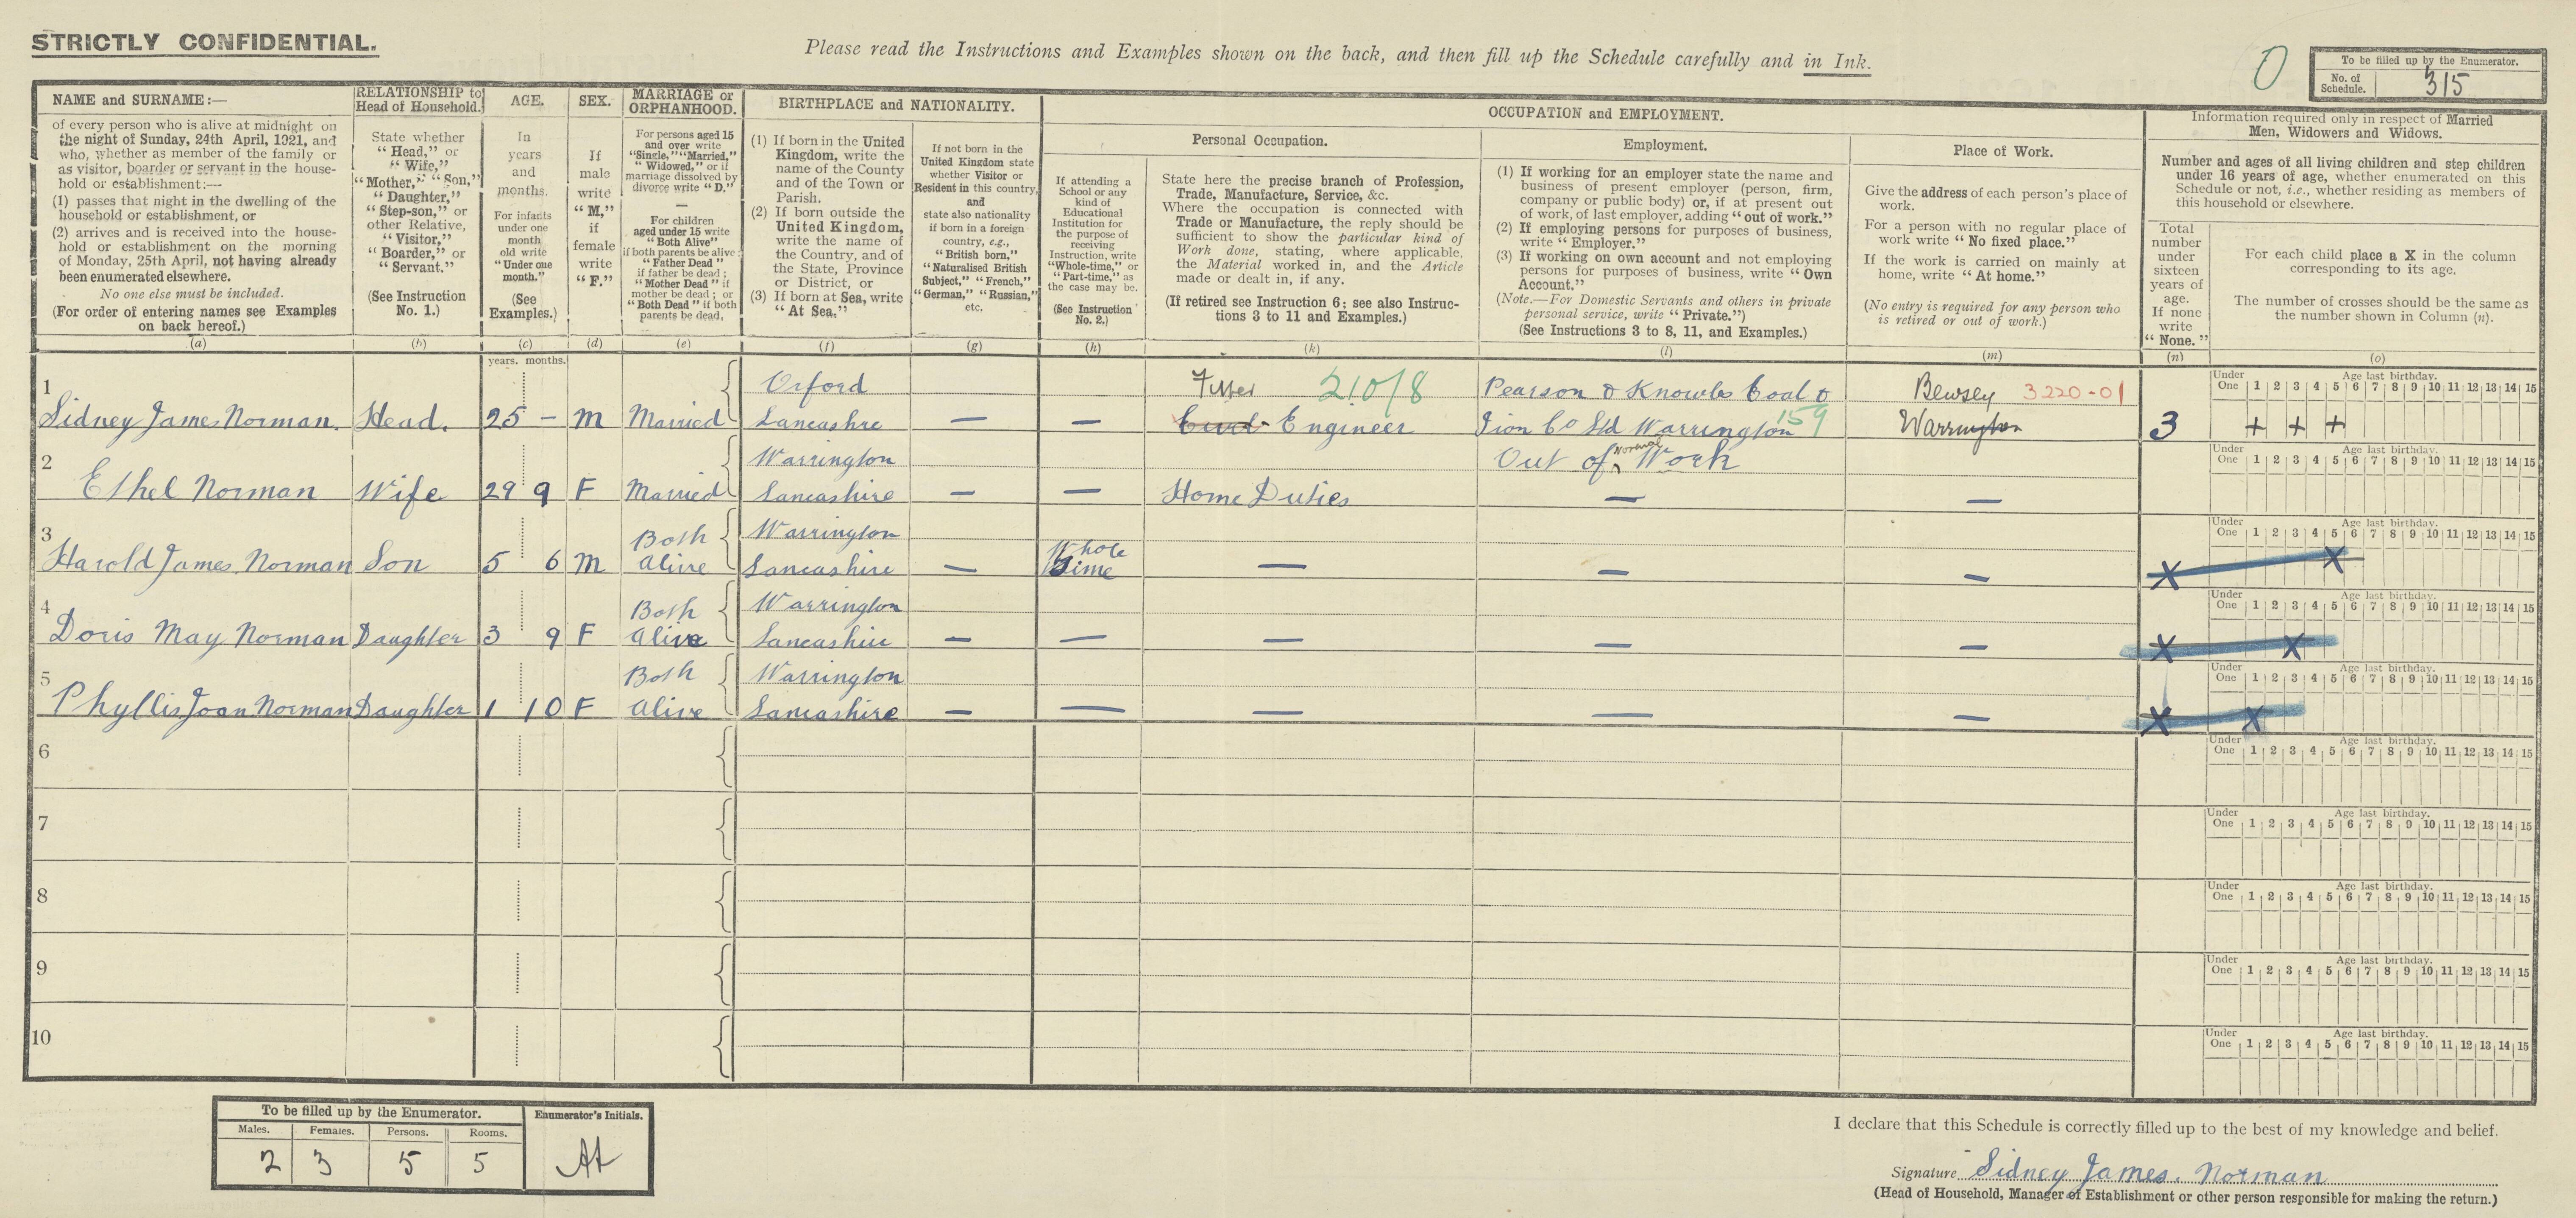 STRICTLY CONFIDENTIAL.
Please read the Instructions and Examples shown on the back, and then fill up the Schedule carefully and in Ink.
0
To be filled up by the Enumerator.
No. of Schedule. 315
NAME and SURNAME:—
of every person who is alive at midnight on
the night of Sunday, 24th April, 1921, and
who, whether as member of the family or
as visitor, boarder or servant in the house-
hold or establishment:—
(1) passes that night in the dwelling of the
household or establishment, or
(2) arrives and is received into the house-
hold or establishment on the morning
of Monday, 25th April, not having already
been enumerated elsewhere.
No one else must be included.
(For order of entering names see Examples
on back hereof.)
(a)
RELATIONSHIP to
Head of Household.
State whether
"Head," or
"Wife,"
"Mother," "Son,"
"Daughter,"
"Step-son," or
other Relative,
"Visitor,"
"Boarder," or
"Servant."
(See Instruction
No. 1.)
(b)
AGE.
In
years
and
months.
For infants
under one
month
old write
"Under one
month."
(See
Examples.)
(c)
SEX.
If
male
write
"M,"
if
female
write
"F."
(d)
MARRIAGE or
ORPHANHOOD.
For persons aged 15
and over write
"Single," "Married,"
"Widowed," or if
marriage dissolved by
divorce write "D."
—
For children
aged under 15 write
"Both Alive"
if both parents be alive;
"Father Dead"
if father be dead;
"Mother Dead" if
mother be dead; or
"Both Dead" if both
parents be dead.
(e)
BIRTHPLACE and NATIONALITY.
(1) If born in the United
Kingdom, write the
name of the County
and of the Town or
Parish.
(2) If born outside the
United Kingdom,
write the name of
the Country, and of
the State, Province
or District, or
(3) If born at Sea, write
"At Sea,"
(f)
If not born in the
United Kingdom state
whether Visitor or
Resident in this country,
and
state also nationality
if born in a foreign
country, e.g.,
"British born,"
"Naturalised British
Subject," "French,"
"German," "Russian,"
etc.
(g)
OCCUPATION and EMPLOYMENT.
If attending a
School or any
kind of
Educational
Institution for
the purpose of
receiving
Instruction, write
"Whole-time," or
"Part-time," as
the case may be.
(See Instruction
No. 2.)
(h)
Personal Occupation.
State here the precise branch of Profession,
Trade, Manufacture, Service, &c.
Where the occupation is connected with
Trade or Manufacture, the reply should be
sufficient to show the particular kind of
Work done, stating, where applicable,
the Material worked in, and the Article
made or dealt in, if any.
(If retired see Instruction 6; see also Instruc-
tions 3 to 11 and Examples.)
(k)
Employment.
(1) If working for an employer state the name and
business of present employer (person, firm,
company or public body) or, if at present out
of work, of last employer, adding "out of work."
(2) If employing persons for purposes of business,
write "Employer."
(3) If working on own account and not employing
persons for purposes of business, write "Own
Account."
(Note.—For Domestic Servants and others in private
personal service, write "Private.")
(See Instructions 3 to 8, 11, and Examples.)
(l)
Place of Work.
Give the address of each person's place of
work.
For a person with no regular place of
work write "No fixed place."
If the work is carried on mainly at
home, write "At home."
(No entry is required for any person who
is retired or out of work.)
(m)
Information required only in respect of Married
Men, Widowers and Widows.
Number and ages of all living children and step children
under 16 years of age, whether enumerated on this
Schedule or not, i.e., whether residing as members of
this household or elsewhere.
Total
number
under
sixteen
years of
age.
If none
write
"None."
(n)
For each child place a X in the column
corresponding to its age.
The number of crosses should be the same as
the number shown in Column (n).
(o)
years. months.
Under One Age last birthday.
1 2 3 4 5 6 7 8 9 10 11 12 13 14 15
1 Orford Fitter 210/8 Pearson & Knowles Coal & Bewsey 3220-01
Sidney James Norman. Head. 25 — M Married Lancashire — — Civil Engineer Iron Co Ltd Warrington 159 Warrington 3 + + +
Under One Age last birthday.
1 2 3 4 5 6 7 8 9 10 11 12 13 14 15
2 Warrington Out of Normal Work
Ethel Norman Wife 29 9 F Married Lancashire — — Home Duties — —
Under One Age last birthday.
1 2 3 4 5 6 7 8 9 10 11 12 13 14 15
3 Both Warrington Whole
Harold James Norman Son 5 6 M Alive Lancashire — Time — — — X X
Under One Age last birthday.
1 2 3 4 5 6 7 8 9 10 11 12 13 14 15
4 Both Warrington
Doris May Norman Daughter 3 9 F Alive Lancashire — — — — — X X
Under One Age last birthday.
1 2 3 4 5 6 7 8 9 10 11 12 13 14 15
5 Both Warrington
Phyllis Joan Norman Daughter 1 10 F Alive Lancashire — — — — — X X
6
Under One Age last birthday.
1 2 3 4 5 6 7 8 9 10 11 12 13 14 15
7
Under One Age last birthday.
1 2 3 4 5 6 7 8 9 10 11 12 13 14 15
8
Under One Age last birthday.
1 2 3 4 5 6 7 8 9 10 11 12 13 14 15
9
Under One Age last birthday.
1 2 3 4 5 6 7 8 9 10 11 12 13 14 15
10
Under One Age last birthday.
1 2 3 4 5 6 7 8 9 10 11 12 13 14 15
To be filled up by the Enumerator.
Enumerator's Initials.
Males. Females. Persons. Rooms.
2 3 5 5
I declare that this Schedule is correctly filled up to the best of my knowledge and belief.
Signature Sidney James. Norman
(Head of Household, Manager of Establishment or other person responsible for making the return.)